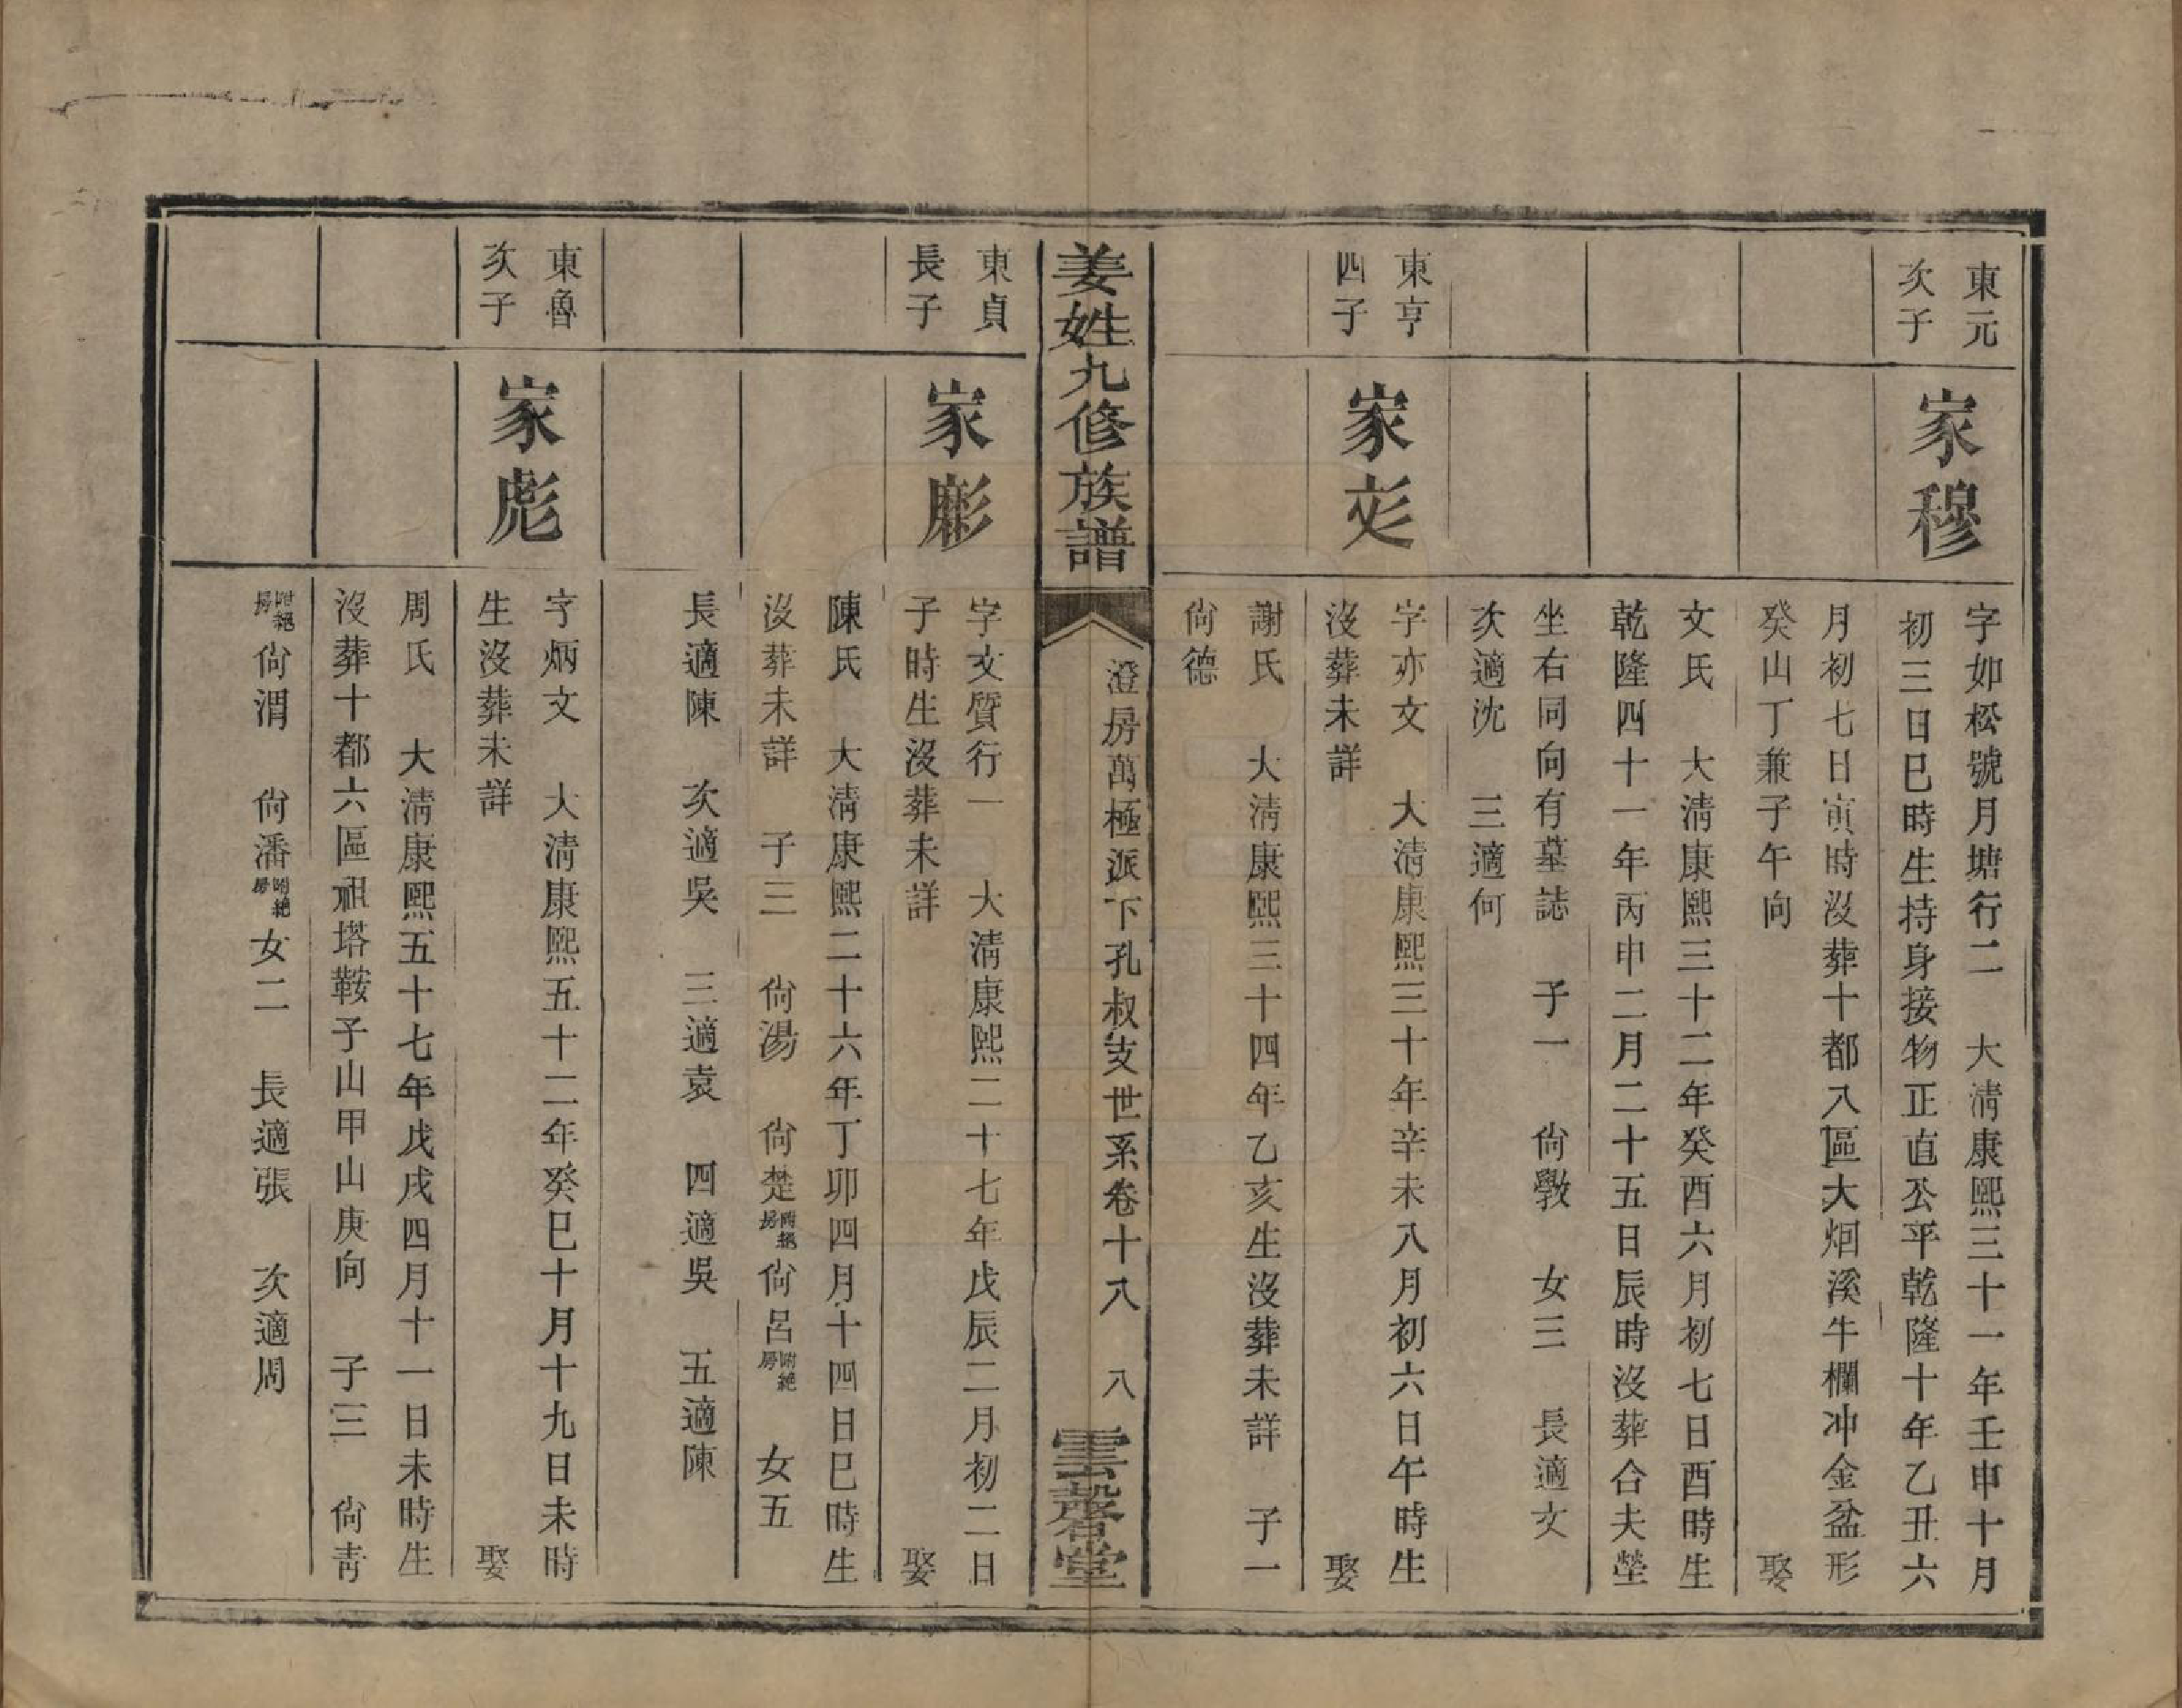 東元
次子
家穆
字如松號月塘行二 大淸康熙三十一年壬申十月
初三日巳時生持身接物正直公平乾隆十年乙丑六
月初七日寅時沒葬十都八區大烟溪牛欄冲金盆形
癸山丁兼子午向 娶
文氏 大淸康熙三十二年癸酉六月初七日酉時生
乾隆四十一年丙申二月二十五日辰時沒葬合夫塋
坐右同向有墓誌 子一 尙斆 女三 長適文
次適沈 三適何
東亨
四子
家彣
字亦文 大淸康熙三十年辛未八月初六日午時生
沒葬未詳 娶
謝氏 大淸康熙三十四年乙亥生沒葬未詳 子一
尙德
姜姓九修族譜
澄房萬極派下孔叔支世系卷十八 八
雲磬堂
東貞
長子
家彪
字文質行一 大淸康熙二十七年戊辰二月初二日
子時生沒葬未詳 娶
陳氏 大淸康熙二十六年丁卯四月十四日巳時生
沒葬未詳 子三 尙湯 尙楚附絕房 尙呂附絕房 女五
長適陳 次適吳 三適袁 四適吳 五適陳
東魯
次子
家彪
字炳文 大淸康熙五十二年癸巳十月十九日未時
生沒葬未詳 娶
周氏 大淸康熙五十七年戊戌四月十一日未時生
沒葬十都六區祖塔鞍子山甲山庚向 子三 尙靑
附絕房 尙渭 尙潘附絕房 女二 長適張 次適周